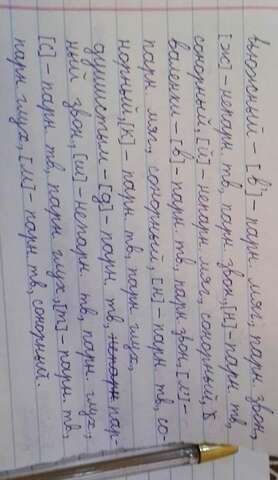 вьюжный - [в'] парн. мяг., парн. звон,
[ж] - непарн. тв, парн. звон, [н] - парн. тв,
сонорный, [й] - непарн. мяг, сонорный,
валенки - [в] - парн. тв, парн. звон, [л'] -
парн. мяг., сонорный, [н] - парн. тв, со-
норный, [к] - парн. тв, парн. глух,
душистым - [д] - парн. тв, непарн пар-
ный звон, [ш] - непарн. тв, парн. глух,
[с] - парн. тв, парн. глух, [т] - парн. тв,
парн. глух, [м] - парн. тв, сонорный.